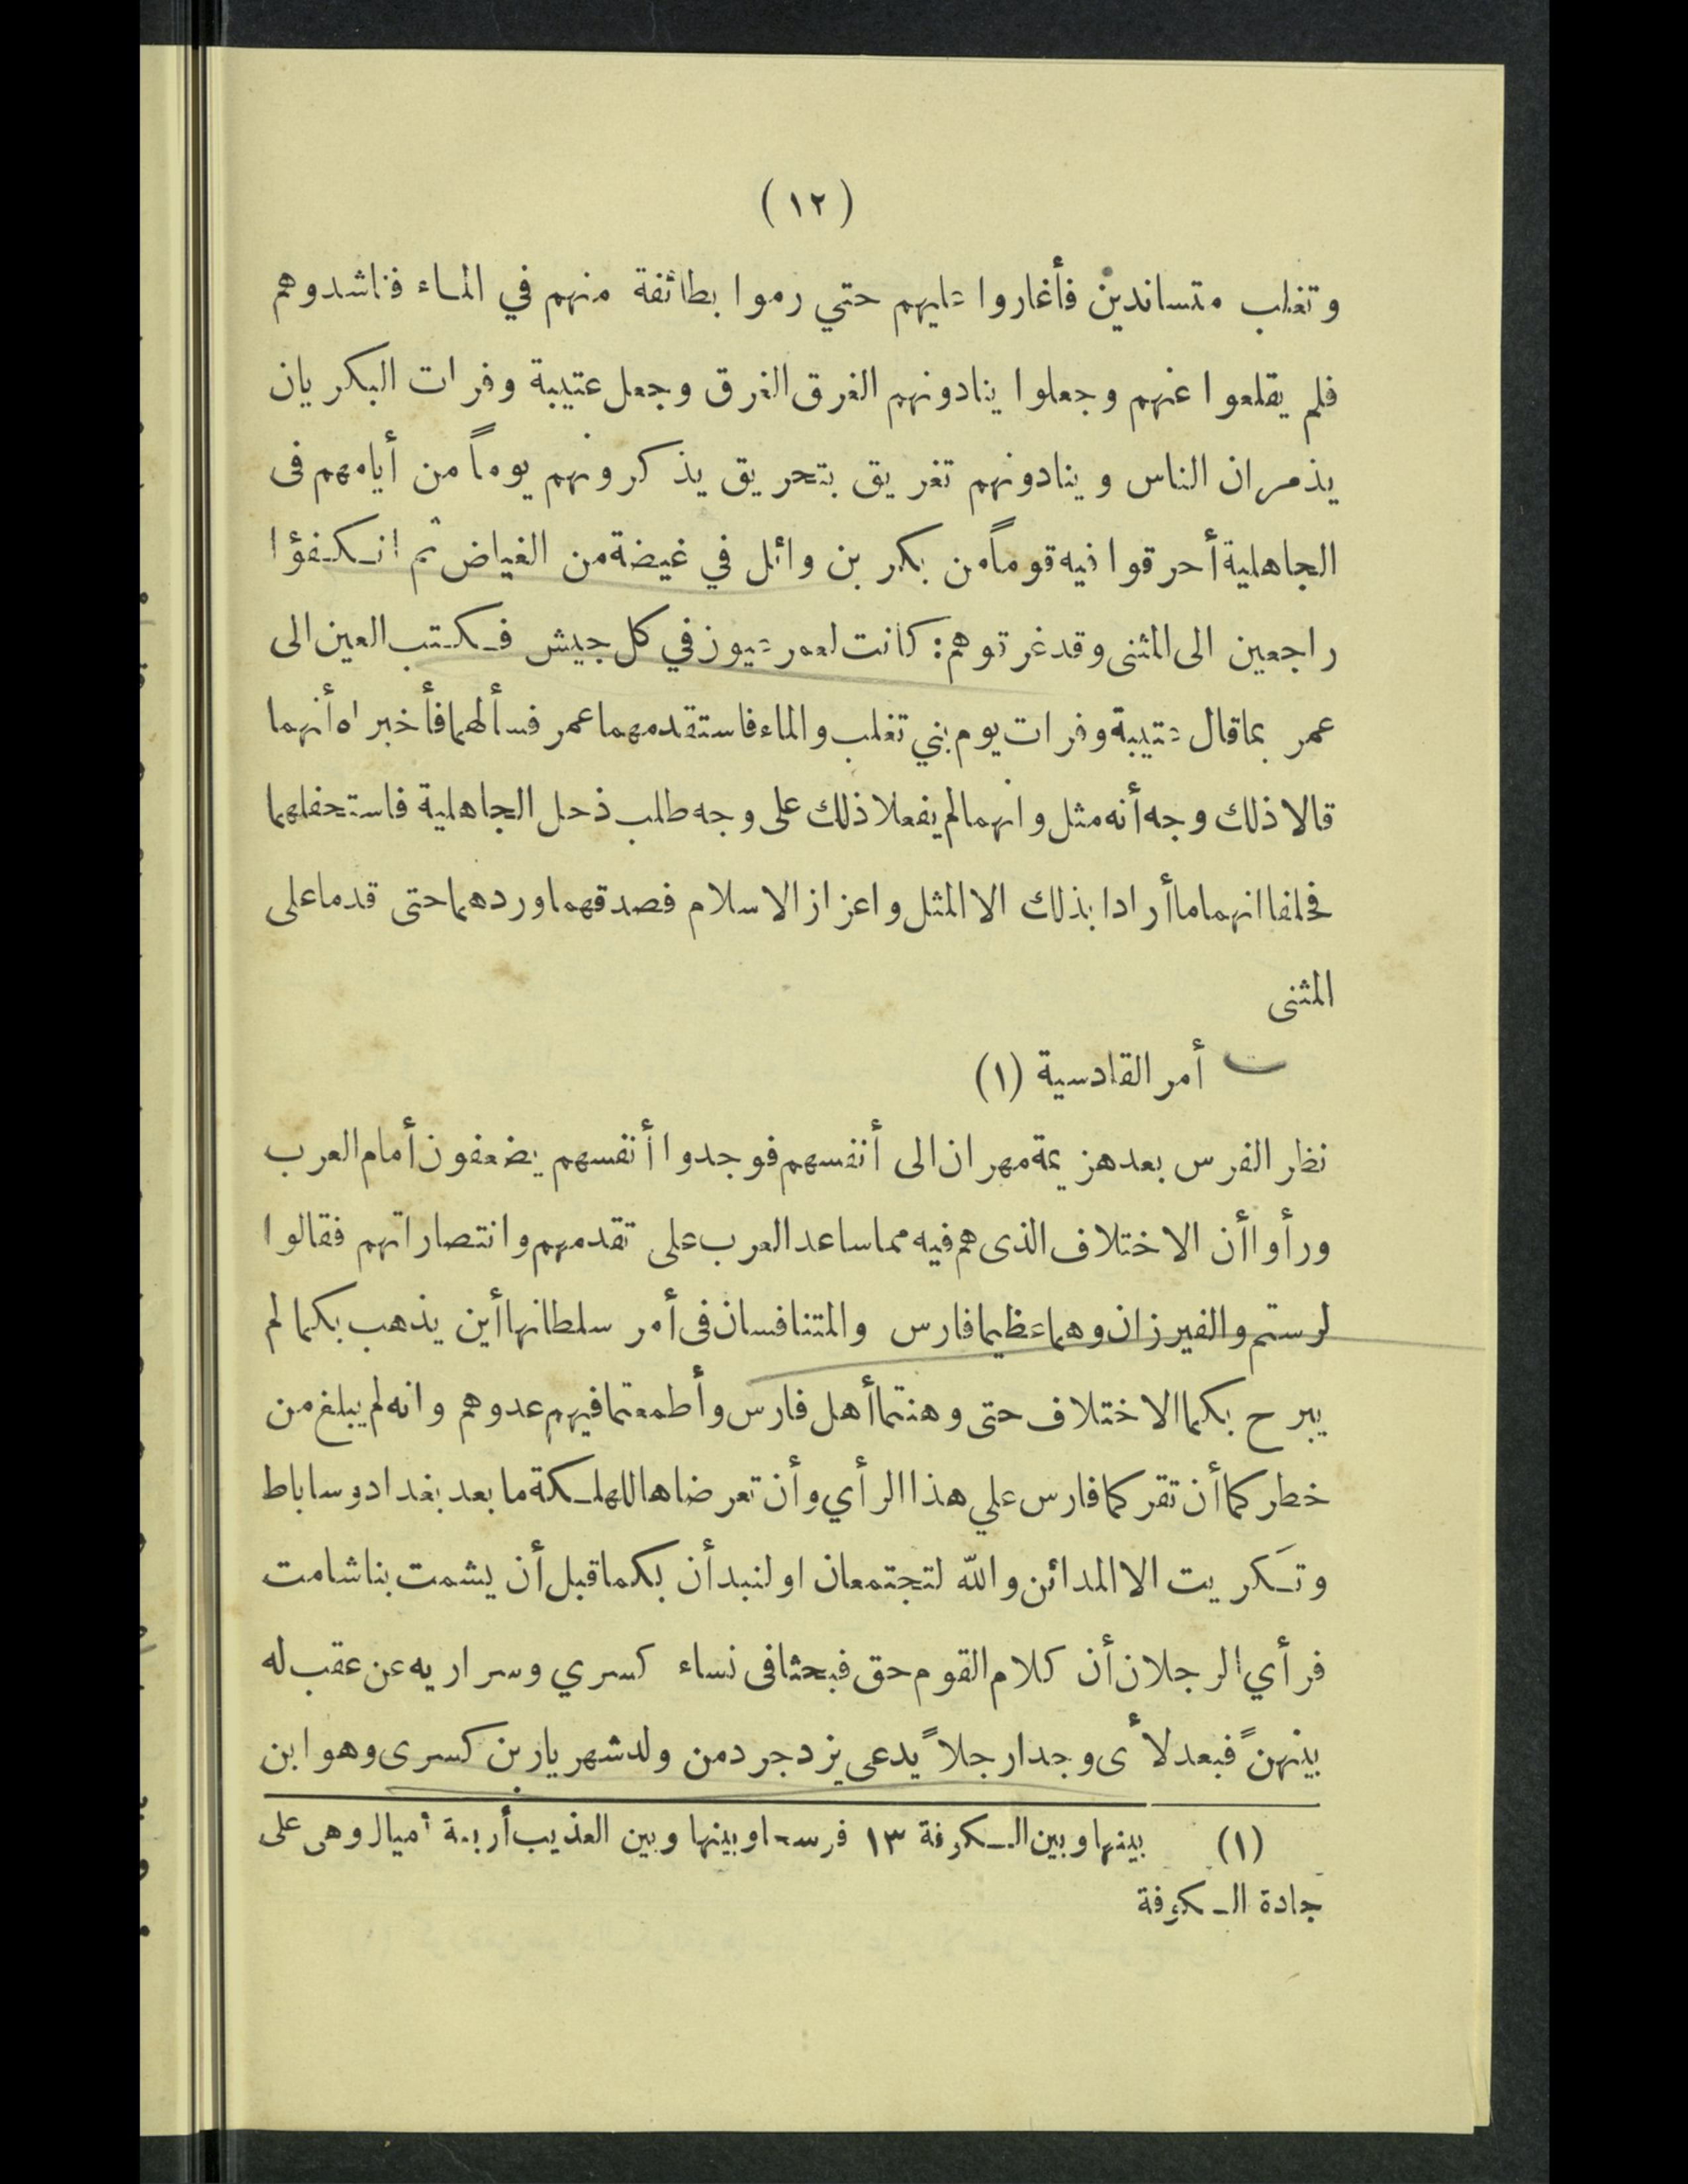 (١٢)
وتغلب متساندين فأغاروا عليهم حتي رموا بطائفة منهم في الماء فناشدوهم
فلم يقلعوا عنهم وجعلوا ينادونهم الغرق الغرق وجعل عتيبة وفرات البكريان
يذمران الناس وينادونهم تغريق بتحريق يذكرونهم يوماً من أيامهم فى
الجاهلية أحرقوا فيه قوماً من بكر بن وائل في غيضة من الغياض ثم انكفؤا
راجعين الى المثنى وقد غرقوهم: كانت لعمر عيون في كل جيش فكتب العين الى
عمر بما قال عتيبة وفرات يوم بني تغلب والماء فاستقدمهما عمر فسألهما فأخبراه أنهما
قالا ذلك وجه أنه مثل وانهما لم يفعلا ذلك على وجه طلب ذحل الجاهلية فاستحفلهما
فحلفا انهما ما أرادا بذلك الا المثل واعزاز الاسلام فصدقهما وردهما حتى قدما على
المثنى
أمر القادسية (١)
نظر الفرس بعد هزيمة مهران الى أنفسهم فوجدوا أنفسهم يضعفون أمام العرب
ورأوا أن الاختلاف الذى هم فيه مما ساعد العرب على تقدمهم وانتصاراتهم فقالوا
لرستم والفيرزان وهما عظيما فارس والمتنافسان فى أمر سلطانها أين يذهب بكما لم
يبرح بكما الاختلاف حتى وهنتما أهل فارس وأطمعتما فيهم عدوهم وانه لم يبلغ من
خطركما أن تقركما فارس علي هذا الرأي وأن تعرضاها للهلكة ما بعد بغداد وساباط
وتكريت الا المدائن والله لتجتمعان او لنبدأن بكما قبل أن يشمت بنا شامت
فرأي الرجلان أن كلام القوم حق فبحثا فى نساء كسري وسراريه عن عقب له
بينهنً فبعد لأى وجدا رجلاً يدعى يزدجرد من ولد شهريار بن كسرى وهو ابن
(١) بينها وبين الكوفة ١٣ فرسخا وبينها وبين العذيب أربعة أميال وهى على
جادة الكوفة